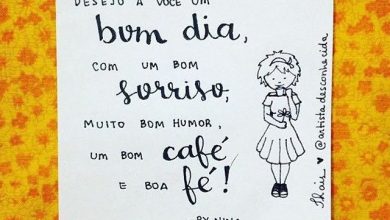 DESEJO A VOCÊ UM
bom dia,
COM UM BOM
sorriso,
MUITO BOM HUMOR,
UM BOM café
E BOA fé!
BY NINA
Thais ♥ @artistadesconhecida